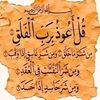 قُلْ أَعُوذُ بِرَبِّ الْفَلَقِ
مِن شَرِّ مَا خَلَقَ وَمِن شَرِّ غَاسِقٍ إِذَا وَقَبَ
وَمِن شَرِّ النَّفَّاثَاتِ فِي الْعُقَدِ
وَمِن شَرِّ حَاسِدٍ إِذَا حَسَدَ